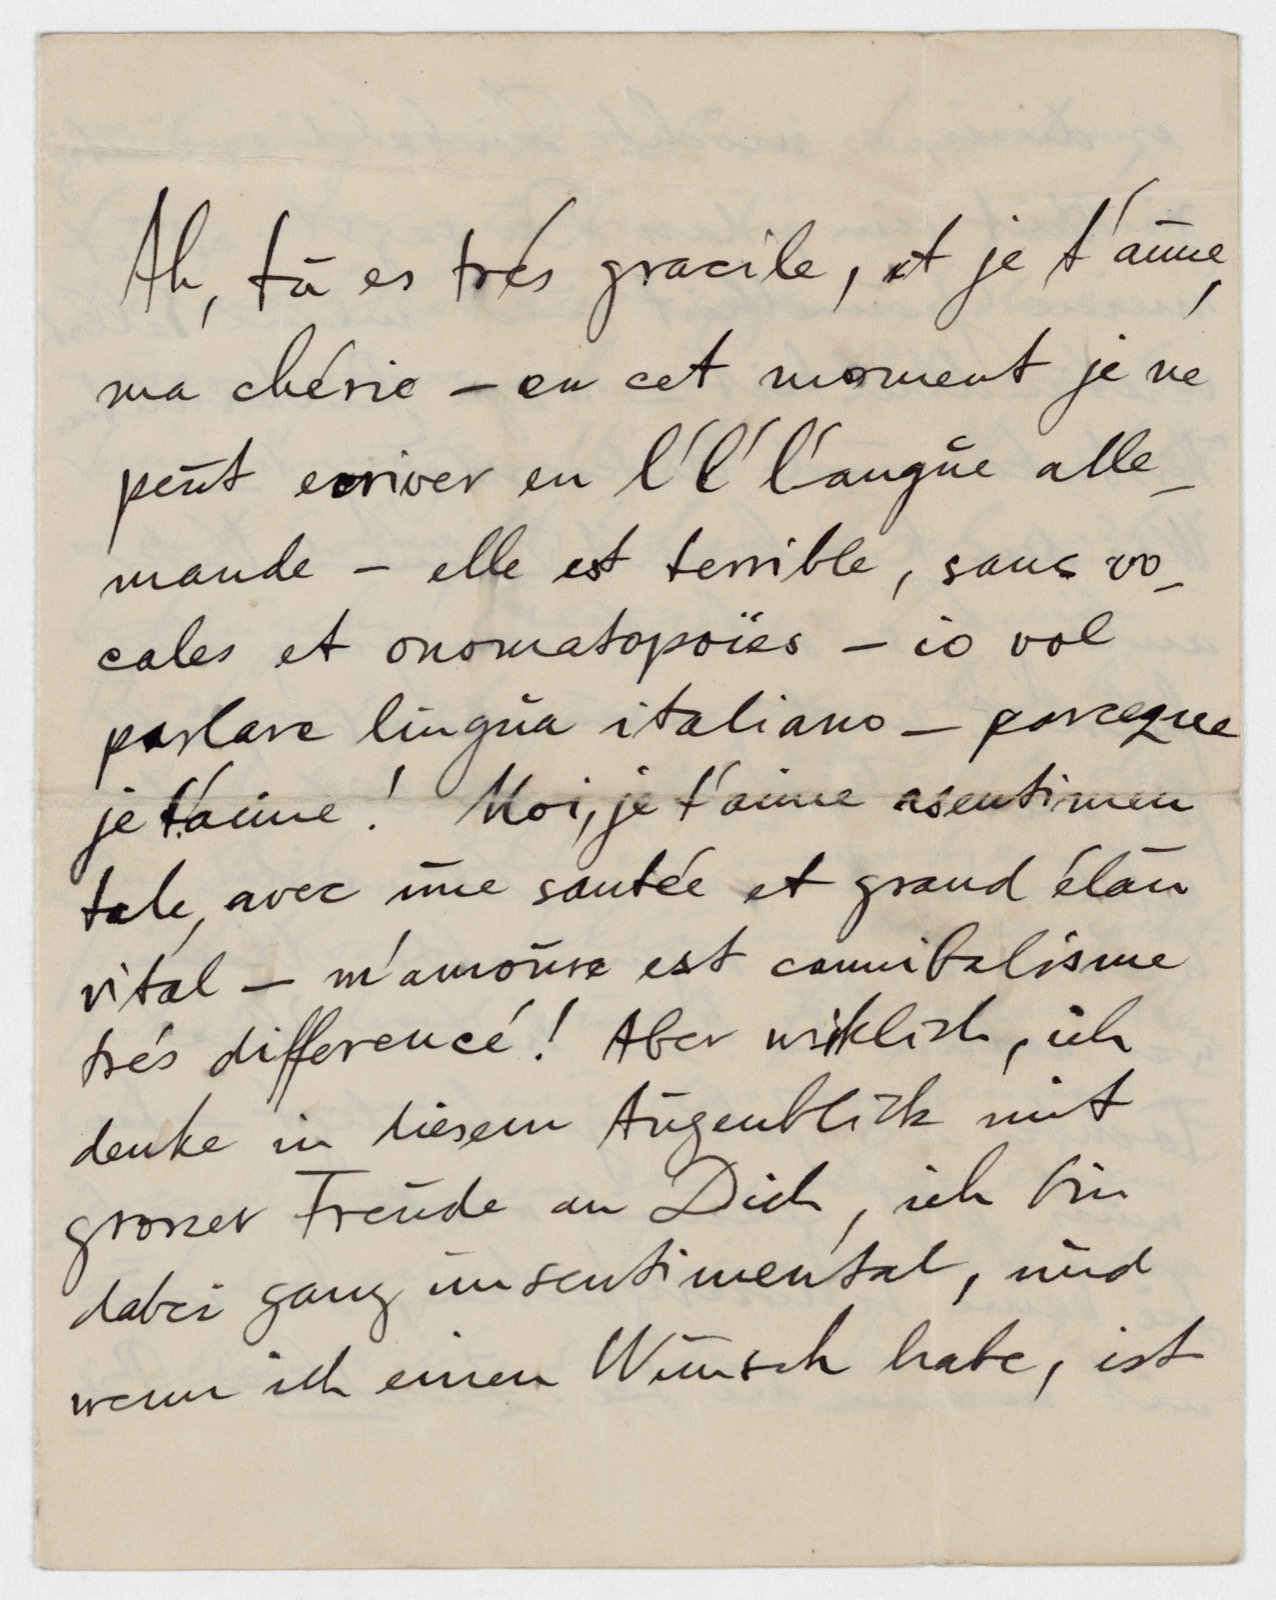 Ah, tū es trés gracile, et je t'aime,
ma chérie – en cet moment je ne
peūt ecriver en l' l' l'angūe alle_
mande – elle est terrible, sans vo_
cales et onomatopoïes – io vol
parlare lingūa italiano – parceque
je t'aime! Moi, je t'aime asentimen
tale, avec ūne santée et grand élan
vital – m'amoūre est cannibalisme
trés differencé! Aber wirklich, ich
denke in diesem Aūgenblick mit
grosser Freūde an Dich, ich bin
dabei ganz ūnsentimental, ūnd
wenn ich einen Wūnsch habe, ist